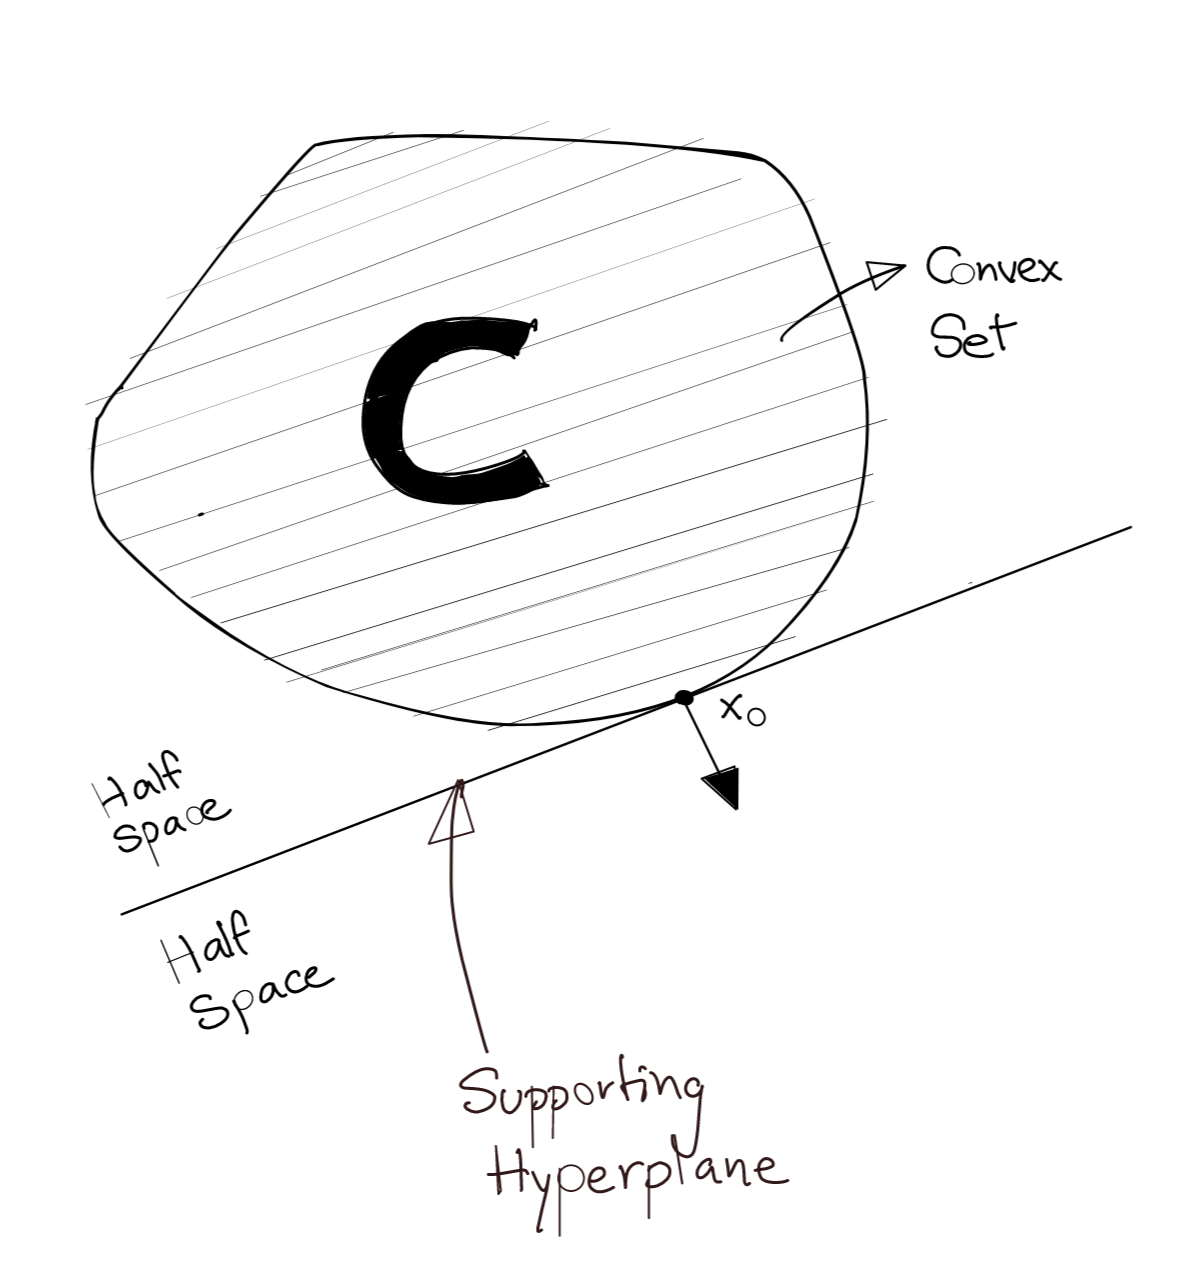 C
Convex
Set
x₀
Half
space
Half
Space
Supporting
Hyperplane